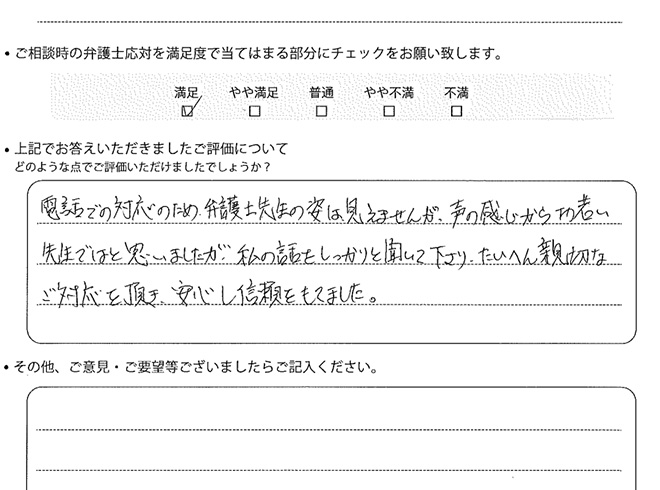 • ご相談時の弁護士応対を満足度で当てはまる部分にチェックをお願い致します。
満足 やや満足 普通 やや不満 不満
• 上記でお答えいただきましたご評価について
どのような点でご評価いただけましたでしょうか？
電話での対応のため、弁護士先生の姿は見えませんが、声の感じからお若い
先生ではと思いましたが、私の話をしっかりと聞いて下さり、たいへん親切な
ご対応を頂き、安心し信頼をもてました。
• その他、ご意見・ご要望等ございましたらご記入ください。